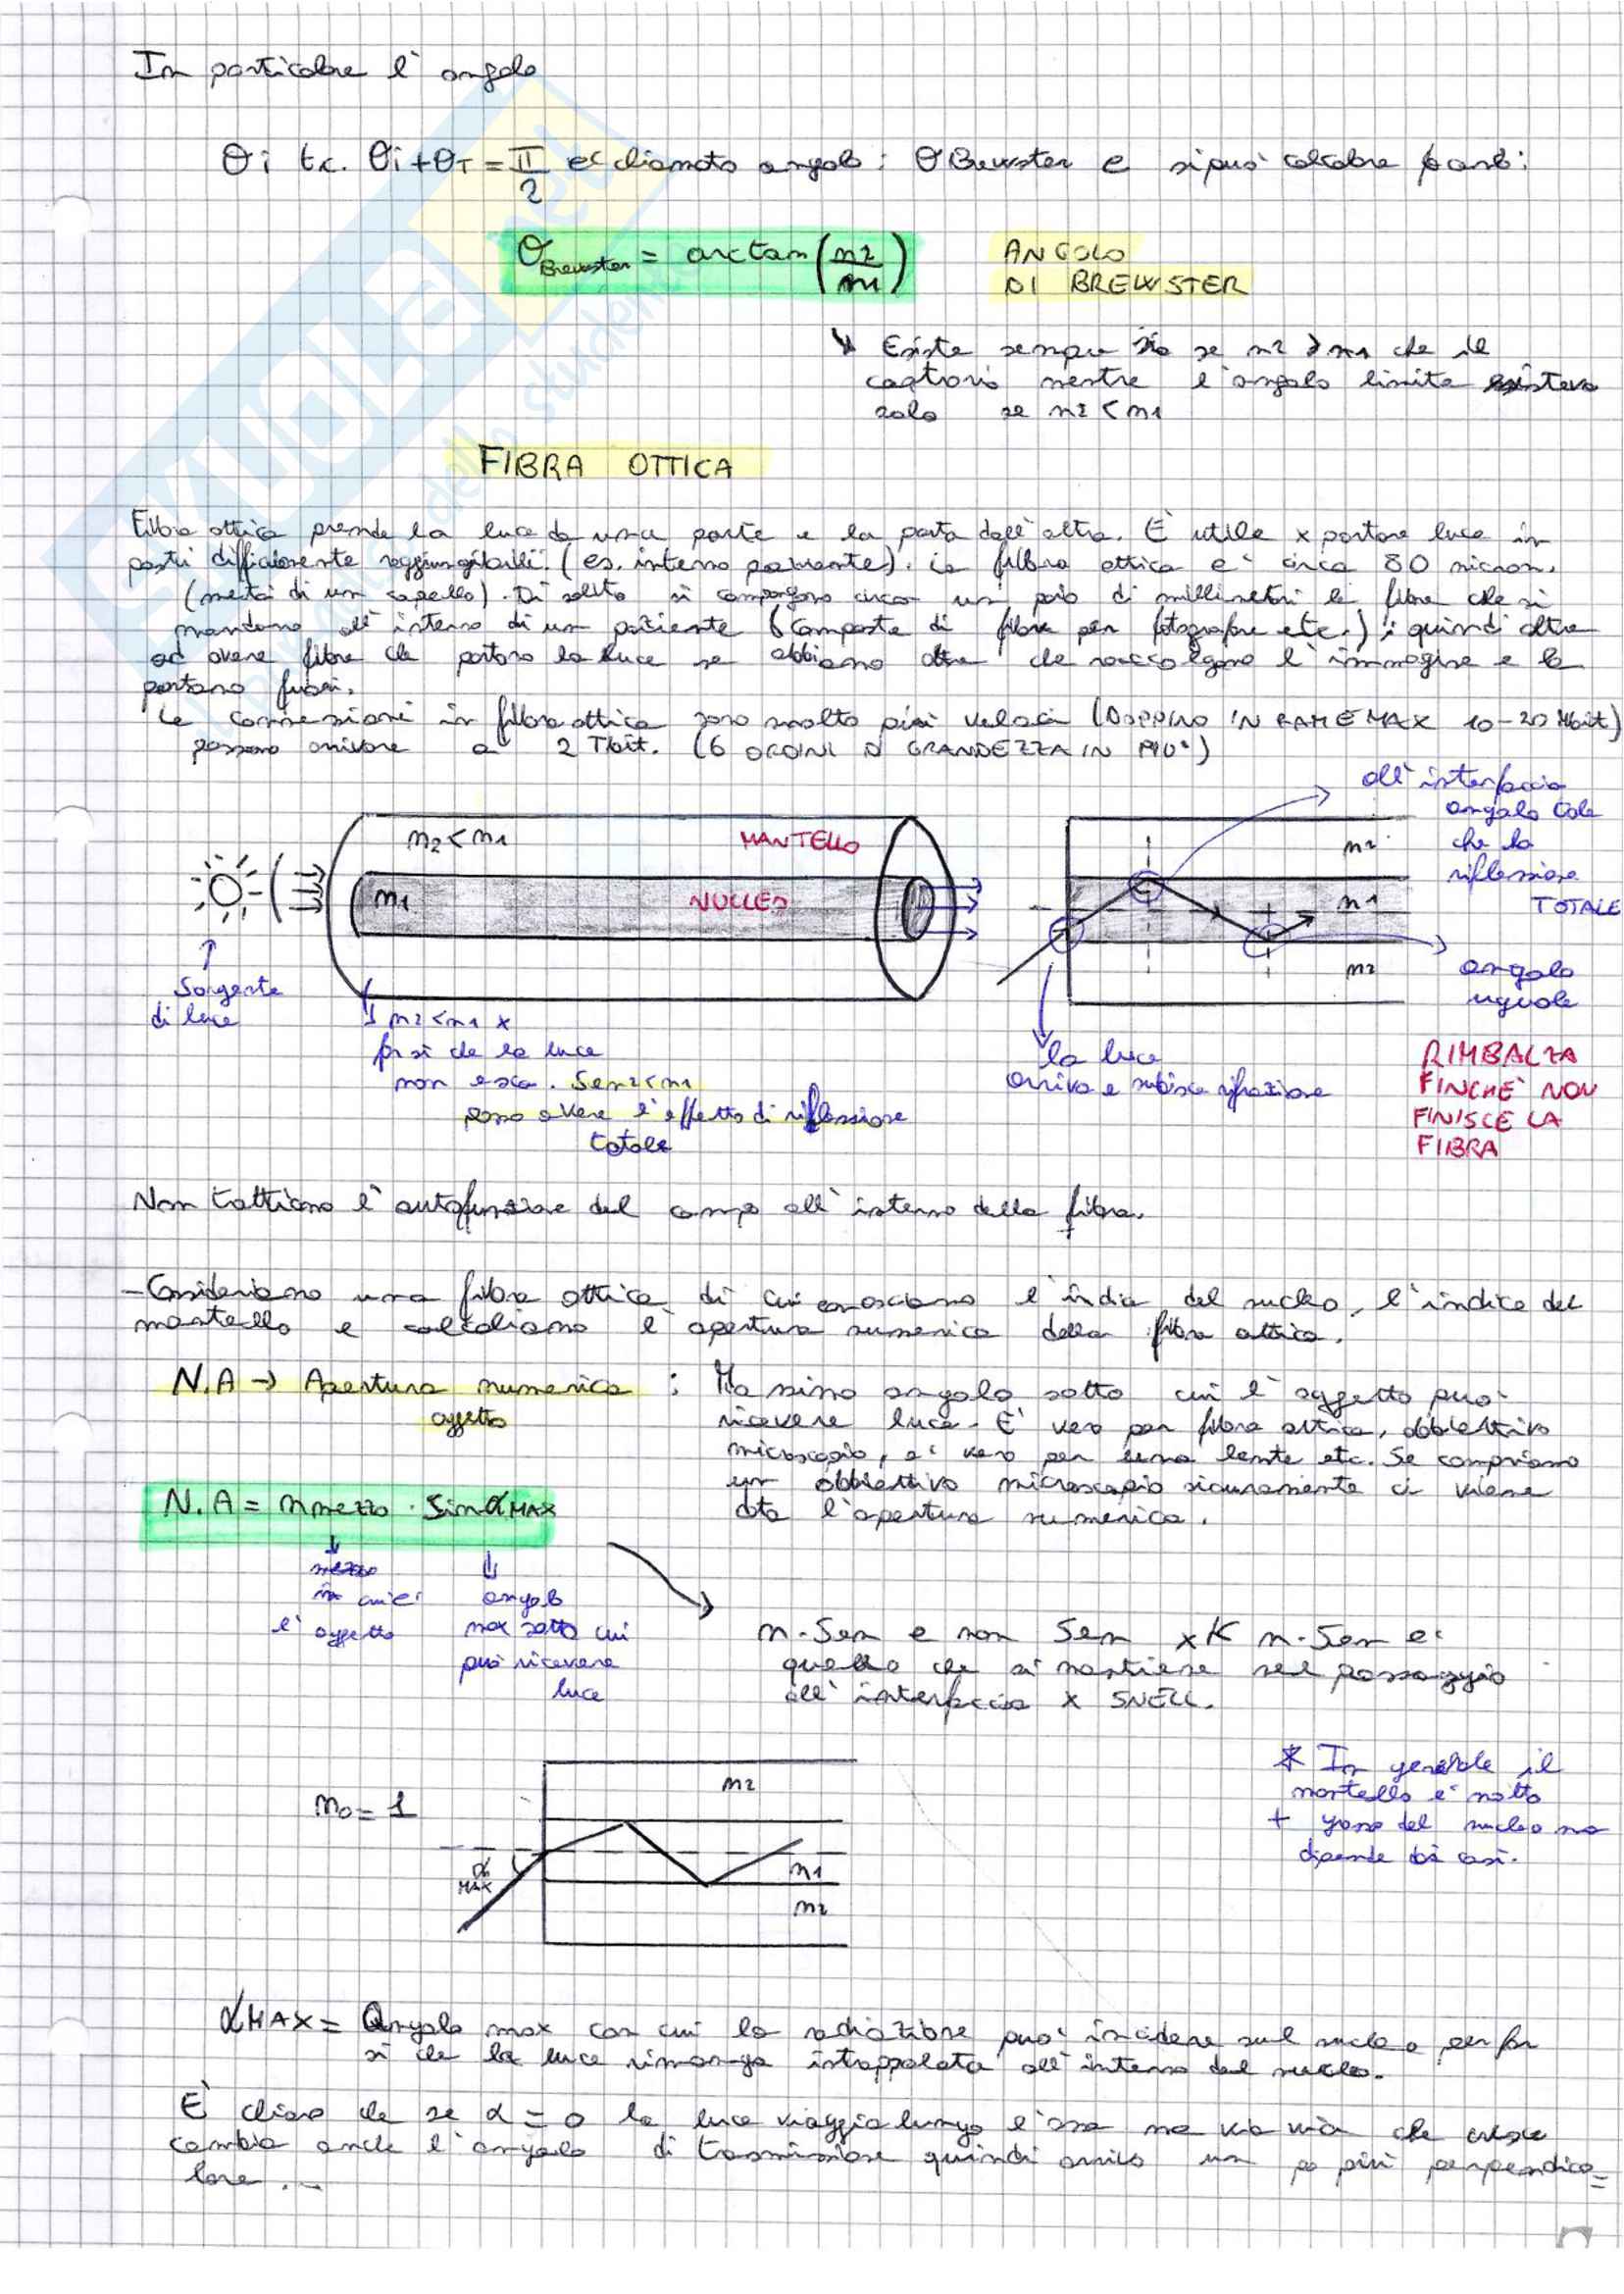 In particolare l'angolo
θi t.c. θi+θT = π/2 è chiamato angolo: θBrewster e si può calcolare come:
θBrewster = arctan(n2/n1)
ANGOLO
DI BREWSTER
Esiste sempre sia se n2 > n1 che il
mentre l'angolo limite esisteva
solo se n2 < n1
FIBRA OTTICA
Fibra ottica prende la luce da una parte e la porta dall'altra. È utile x portare luce in
posti difficilmente raggiungibili. (es. interno paziente). La fibra ottica è circa 80 micron.
(metà di un capello). Di solito si compongono circa un paio di millimetri le fibre che si
mandano all'interno di un paziente (composte di fibre per fotografare etc.); quindi oltre
ad avere fibre che portano la luce ne abbiamo altre che raccolgono l'immagine e la
portano fuori.
Le connessioni in fibra ottica sono molto più veloci (DOPPINO IN RAME MAX 10-20 Mbit)
possono arrivare a 2 Tbit. (6 ORDINI DI GRANDEZZA IN PIU')
all'interfaccia
angolo tale
che la
riflessione
TOTALE
n2 < n1
MANTELLO
n1
NUCLEO
n2
n1
n2
angolo
uguale
Sorgente
di luce
n2<n1 x
far sì che la luce
non esca. Se n2<n1
posso avere l'effetto di riflessione
totale
la luce
arriva e subisce rifrazione
RIMBALZA
FINCHE' NON
FINISCE LA
FIBRA
Non trattiamo l'autofunzione del campo all'interno della fibra.
- Consideriamo una fibra ottica di cui conosciamo l'indice del nucleo, l'indice del
mantello e calcoliamo l'apertura numerica della fibra ottica.
N.A → Apertura numerica :
oggetto
Massimo angolo sotto cui l'oggetto può
ricevere luce. E' vero per fibra ottica, obbiettivo
microscopio, e' vero per una lente etc. Se compriamo
un obbiettivo microscopio sicuramente ci viene
data l'apertura numerica.
N.A = nmezzo · Sin αMAX
mezzo
in cui c'è
l'oggetto
angolo
max sotto cui
può ricevere
luce
n·Sen e non Sen xK n·Sen e'
quello che si mantiene nel passaggio
all'interfaccia x SNELL.
* In generale il
mantello e' molto
+ del nucleo ma
dipende dai casi.
n0 = 1
n2
α
MAX
n1
n2
αMAX = Angolo max con cui la radiazione può incidere sul nucleo per far
sì che la luce rimanga intrappolata all'interno del nucleo.
È chiaro che se α = 0 la luce viaggia lungo l'asse ma via via che cresce
cambia anche l'angolo di trasmissione quindi arriva un po più perpendico=
lare ...